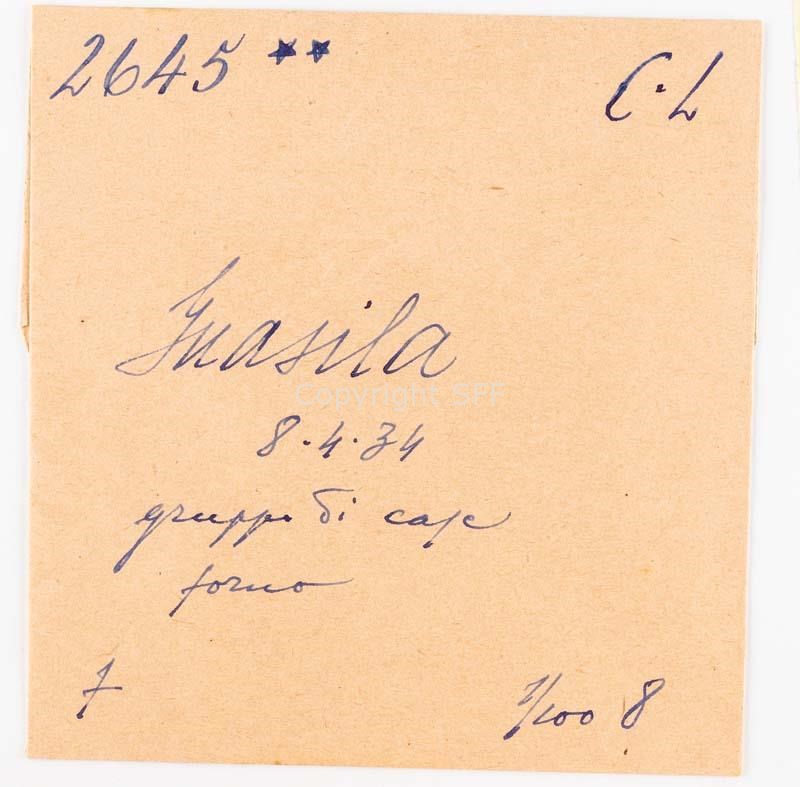 2645 ** C·L
Guasila
Copyright SFF
8·4·34
gruppi di case
forno
7
1/100 8